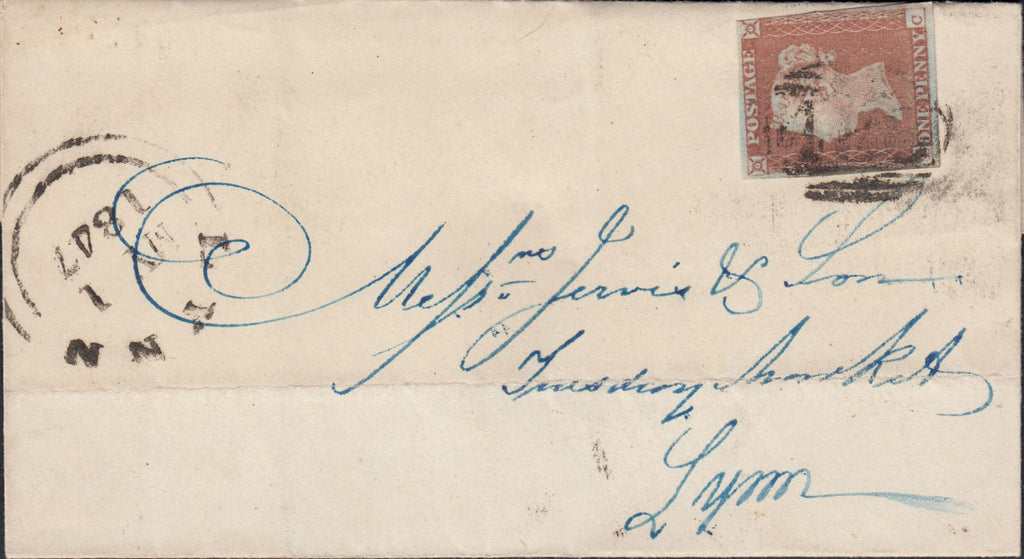 POSTAGE
C
ONE PENNY
LYNN
1
1847
Messrs Jervis & Son.
Tuesday Market
Lynn